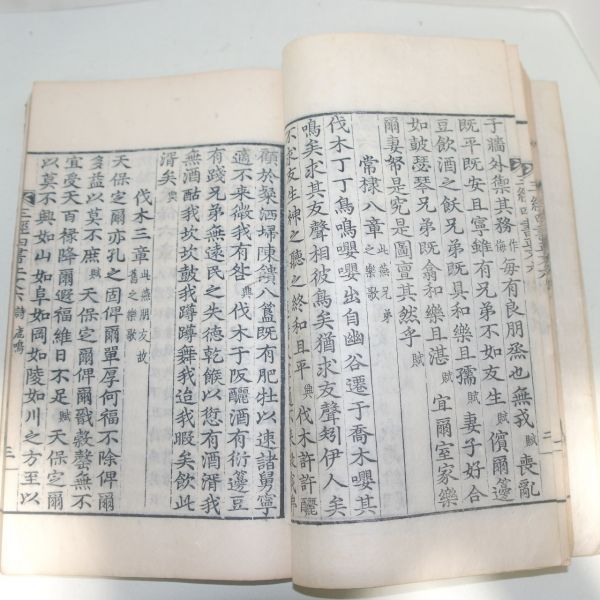 子牆外禦其務侮作每有良朋烝也無戎賦喪亂
旣平旣安且寧雖有兄弟不如友生賦儐爾籩
豆飮酒之飫兄弟旣具和樂且孺賦妻子好合
如鼓瑟琴兄弟旣翕和樂且湛賦宜爾室家樂
爾妻帑是究是圖亶其然乎賦
常棣八章此燕兄弟之樂歌
伐木丁丁鳥鳴嚶嚶出自幽谷遷于喬木嚶其
鳴矣求其友聲相彼鳥矣猶求友聲矧伊人矣
不求友生神之聽之終和且平興伐木許許釃
於粲洒埽陳饋八簋旣有肥牡以速諸舅寧
適不來微我有咎興伐木于阪釃酒有衍籩豆
有踐兄弟無遠民之失德乾餱以愆有酒湑我
無酒酤我坎坎鼓我蹲蹲舞我迨我暇矣飮此
湑矣興
伐木三章此燕朋友故舊之樂歌
天保定爾亦孔之固俾爾單厚何福不除俾爾
多益以莫不庶賦天保定爾俾爾戩穀罄無不
宜受天百祿降爾遐福維日不足賦天保定爾
以莫不興如山如阜如岡如陵如川之方至以
三經四書正文六 詩鹿鳴 三